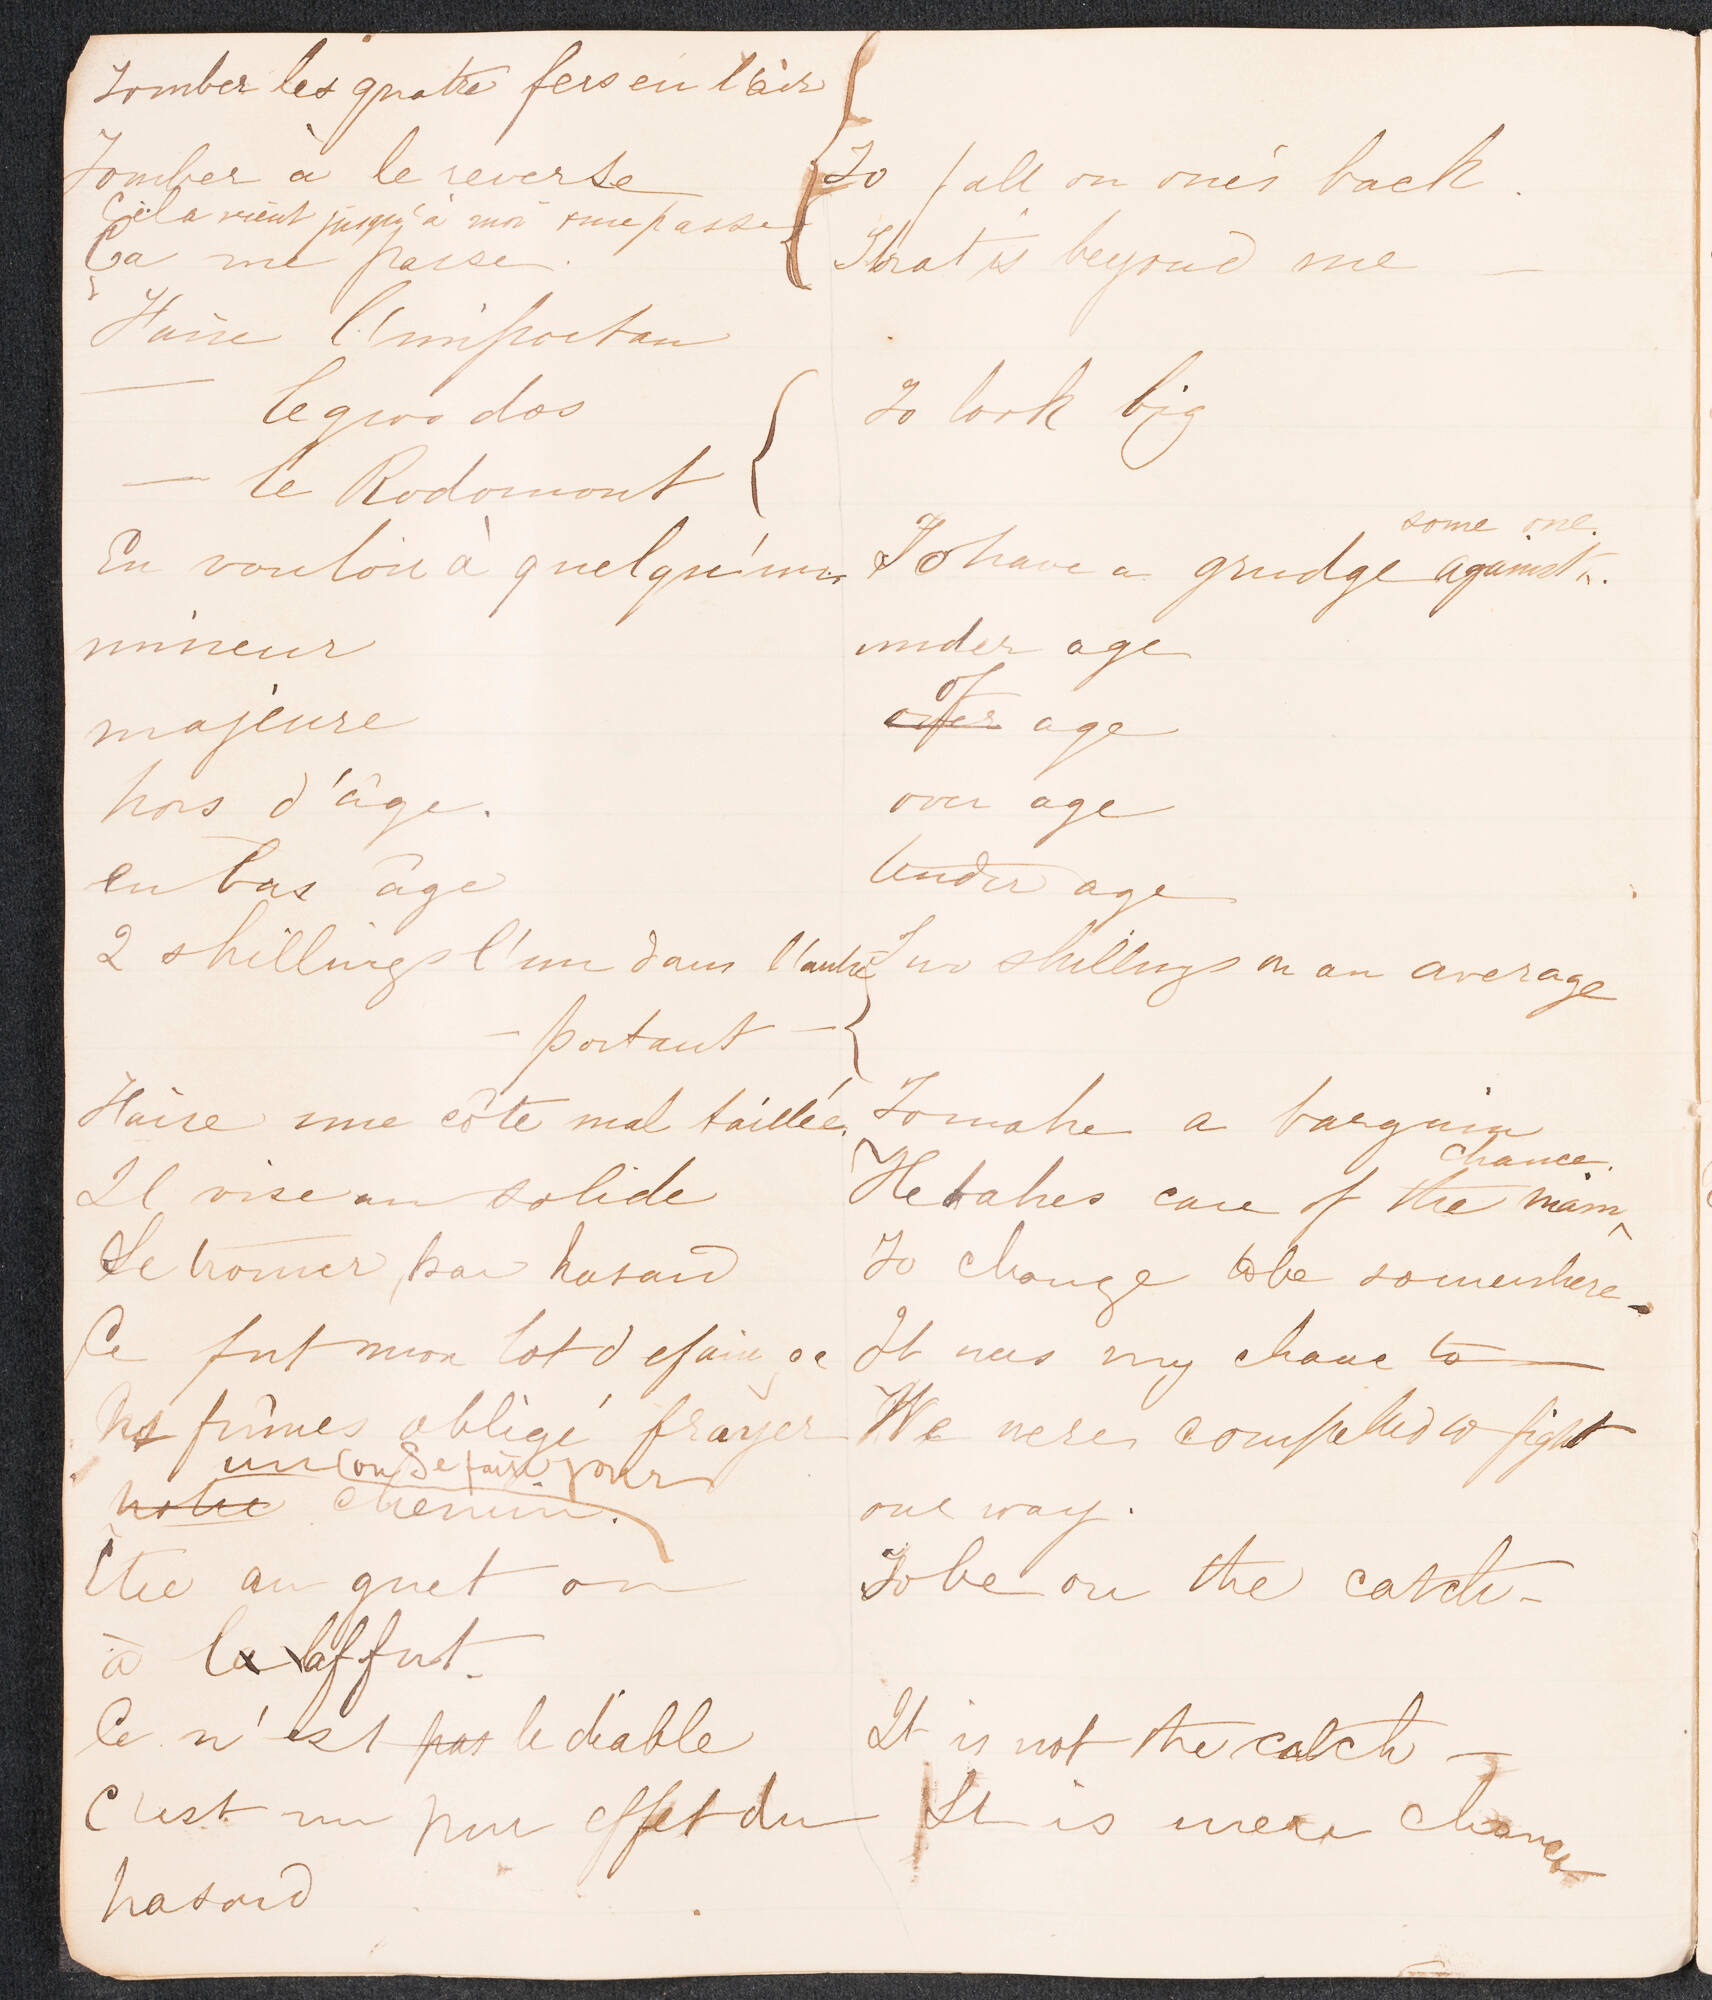 Tomber les quatre fers en l'air
Tomber à le reverse To fall on one's back.
Cela vient jusqu'à moi me passe
Ça me passe. That is beyond me —
Faire l'importan
— le gros dos To look big
— le Rodomont
some one.
En vouloir à quelqu'un To have a grudge against ^.
mineur under age
of
majeure over age
hors d'âge. over age
en bas âge Under age
2 shillings l'un dans l'autre Two shillings on an average
— portant —
Faire une côte mal taillée. To make a bargain
chance.
Il vise au solide He takes care of the main ^
Se trouver par hasard To change to be somewhere -
Ce fut mon lot de faire ce It was my chance to —
Ns fûmes obligé frayer We were compelled to fight
un (ou se faire jour
notre chemin. our way.
Être au guet ou To be on the catch -
à la l'affut.
Ce n'est pas le diable It is not the catch —
C'est un pur effet du It is mere chance
hasard